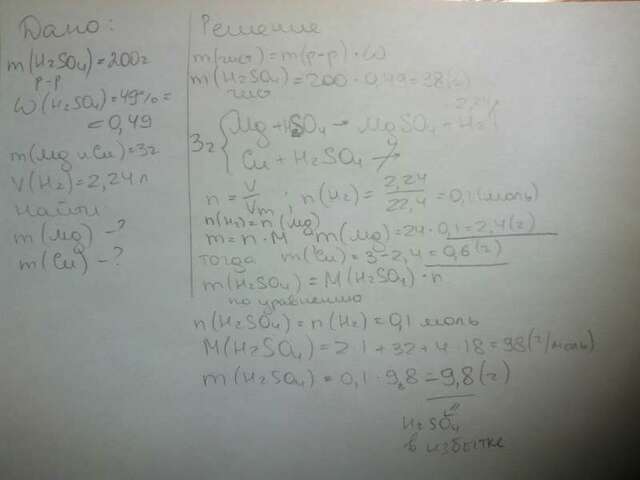 Дано:
m(H2SO4)=200г
р-р
W(H2SO4)=49%=
=0,49
m(Mg и Cu)=3г
V(H2)=2,24л
Найти
m(Mg)-?
m(Cu)-?
Решение
m(чист)=m(р-р)·W
m(H2SO4)=200·0,49=98(г)
чист
2,24л
3г { Mg+H2SO4→MgSO4+H2↑
Cu+H2SO4↛
n=V/Vm; n(H2)=2,24/22,4=0,1(моль)
n(H2)=n(Mg)
m=n·M m(Mg)=24·0,1=2,4(г)
тогда m(Cu)=3-2,4=0,6(г)
m(H2SO4)=M(H2SO4)·n
по уравнению
n(H2SO4)=n(H2)=0,1 моль
M(H2SO4)=2·1+32+4·18=98(г/моль)
m(H2SO4)=0,1·9,8=9,8(г)
H2SO4
в избытке